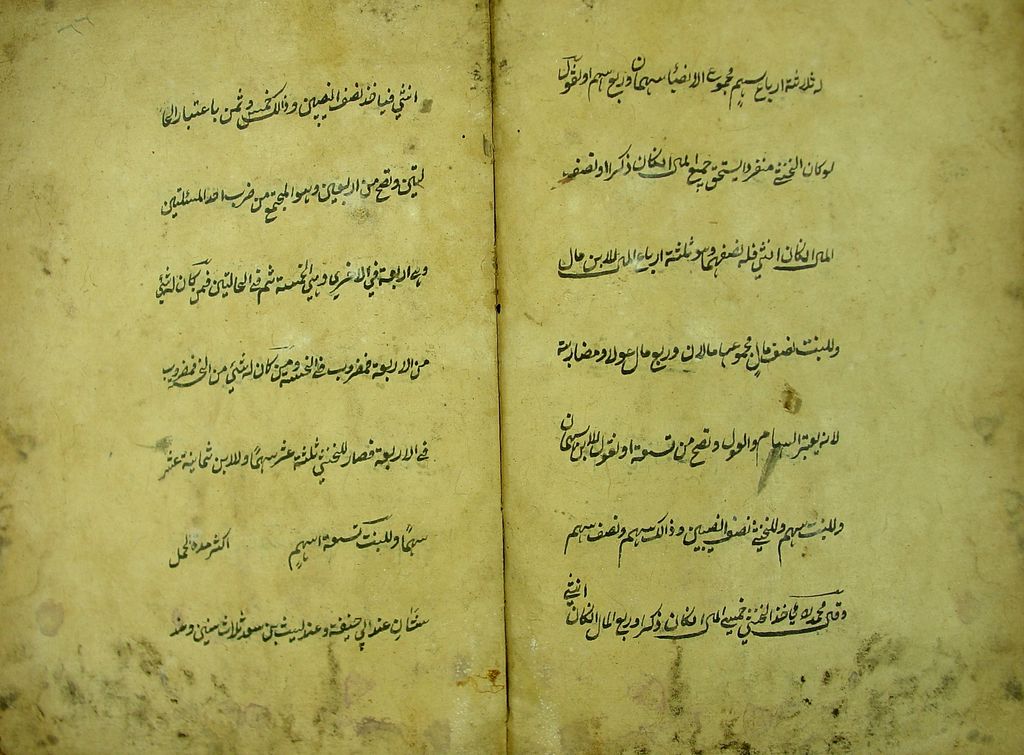 له ثلاثة ارباع سهم مجموع الانصبا سهمان وربع سهم او نقول
لو كان الخنثى منفردا يستحق جميع المال ان كان ذكرا او نصف
المال ان كان انثى فله نصفهما وهو ثلثة ارباع المال للابن مال
وللبنت نصف مال مجموعها مالان وربع مال عولا ومضاربة
لانه يعتبر السهام والعول وتصح من تسعة او نقول للابن سهمان
وللبنت سهم وللخنثى نصف النصيبين وذلك سهم ونصف سهم
وقال محمد ياخذ الخنثى خمسي المال ان كان ذكرا وربع المال ان كان
انثى فياخذ نصف النصيبين وذلك خمس وثمن باعتبار الحا
لتين وتصح من اربعين وهو المجتمع من ضرب احد المسئلتين
وهي اربعة في الاخرى وهي الخمسة ثم في الحالتين فمن كان له شئ
من الاربعة فمضروب في الخمسة ومن كان له شئ من الخمسة فمضروب
في الاربعة فصار للخنثى ثلثة عشر سهمًا وللابن ثمانية عشر
سهمًا وللبنت تسعة اسهم اكثر مدة الحمل
سنتان عند ابي حنيفة وعند ليث بن سعد ثلاث سنين وعند